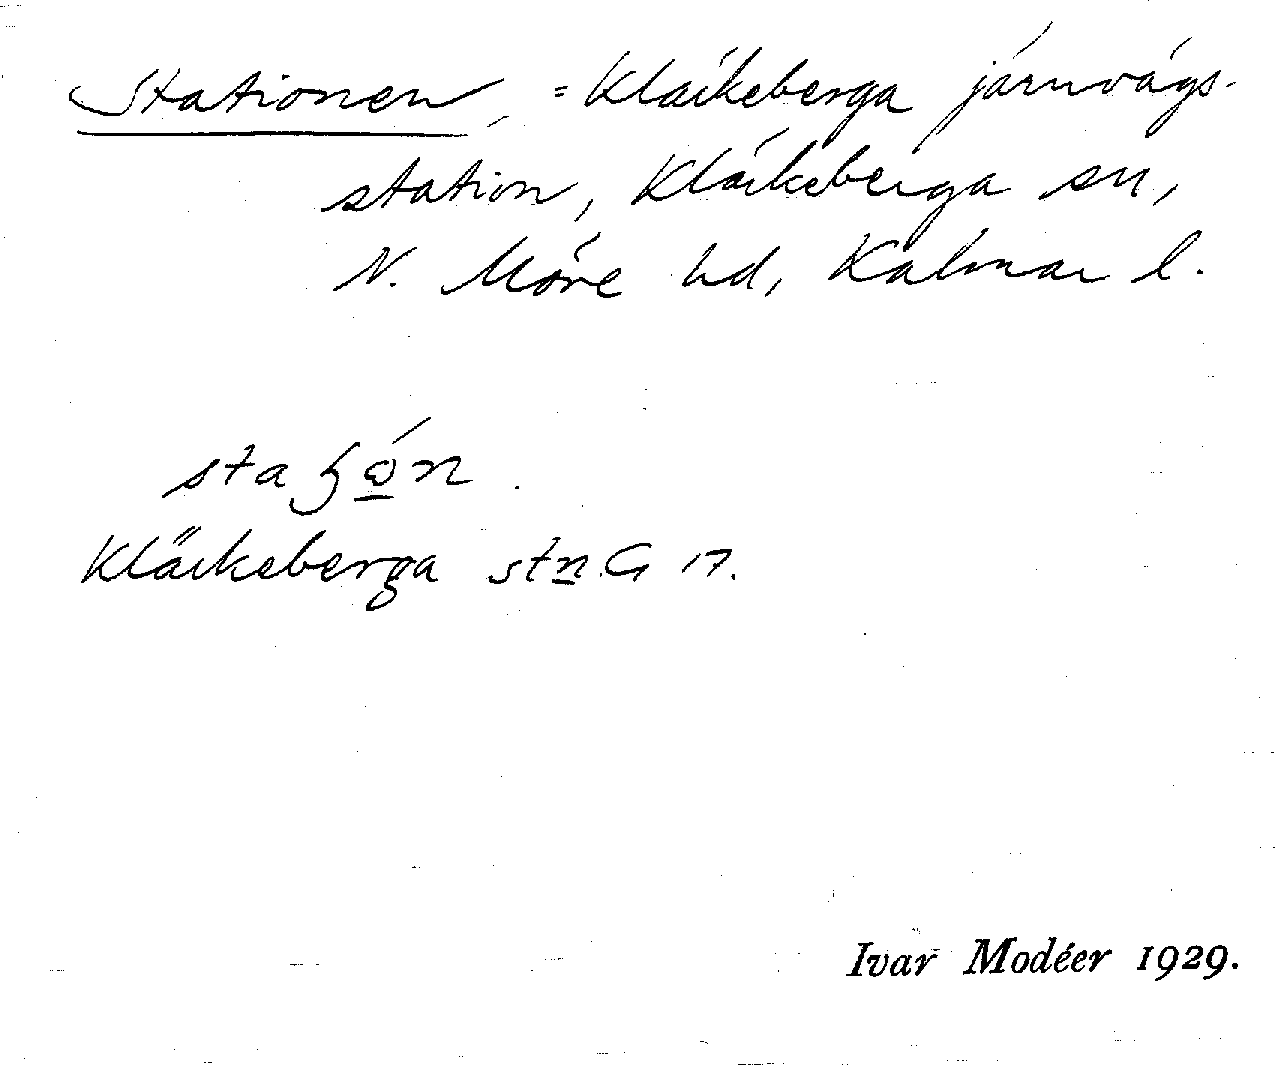 Stationen, = Kläckeberga järnvägs-
station, Kläckeberga sn,
N. Möre hd, Kalmar l.
Kläckeberga stn. G 17.
Ivar Modéer 1929.